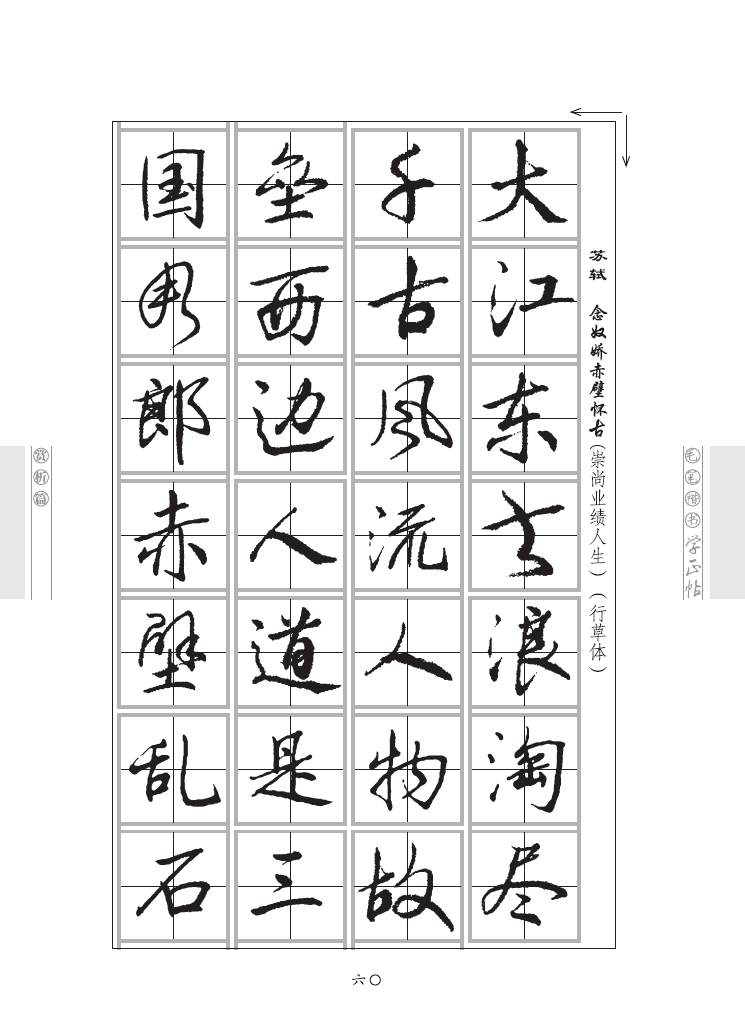 毛笔楷书学正帖
苏轼 念奴娇赤壁怀古（崇尚业绩人生）（行草体）
大江东去浪淘尽
千古风流人物故
垒西边人道是三
国周郎赤壁乱石
赏析篇
六〇